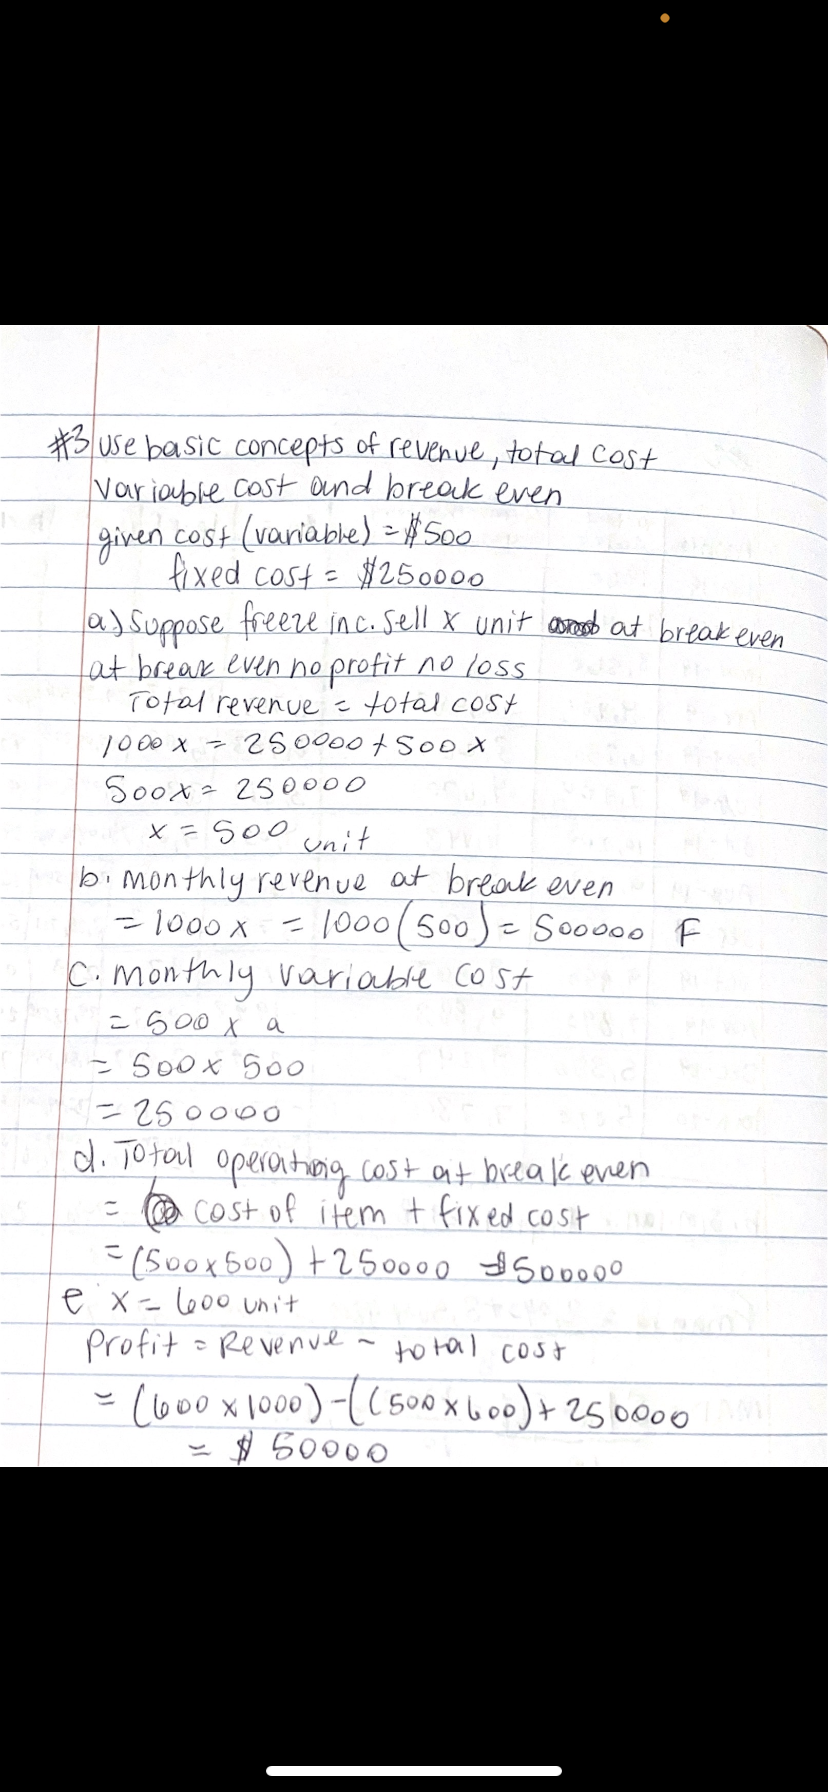 #3 use basic concepts of revenue, total cost
variable cost and break even
given cost (variable) = $500
fixed cost = $250000
a) suppose freeze inc. sell x unit at break even
at break even no profit no loss
Total revenue = total cost
1000 x = 250000 + 500 x
500x = 250000
x = 500 unit
b. monthly revenue at break even
= 1000 x = 1000 (500) = 500000 F
c. monthly variable cost
= 500 x a
= 500 x 500
= 250000
d. Total operating cost at break even
= cost of item + fixed cost
= (500 x 500) + 250000 = $500000
e x = 600 unit
Profit = Revenue - total cost
= (600 x 1000) - ((500 x 600) + 250000
= $ 50000